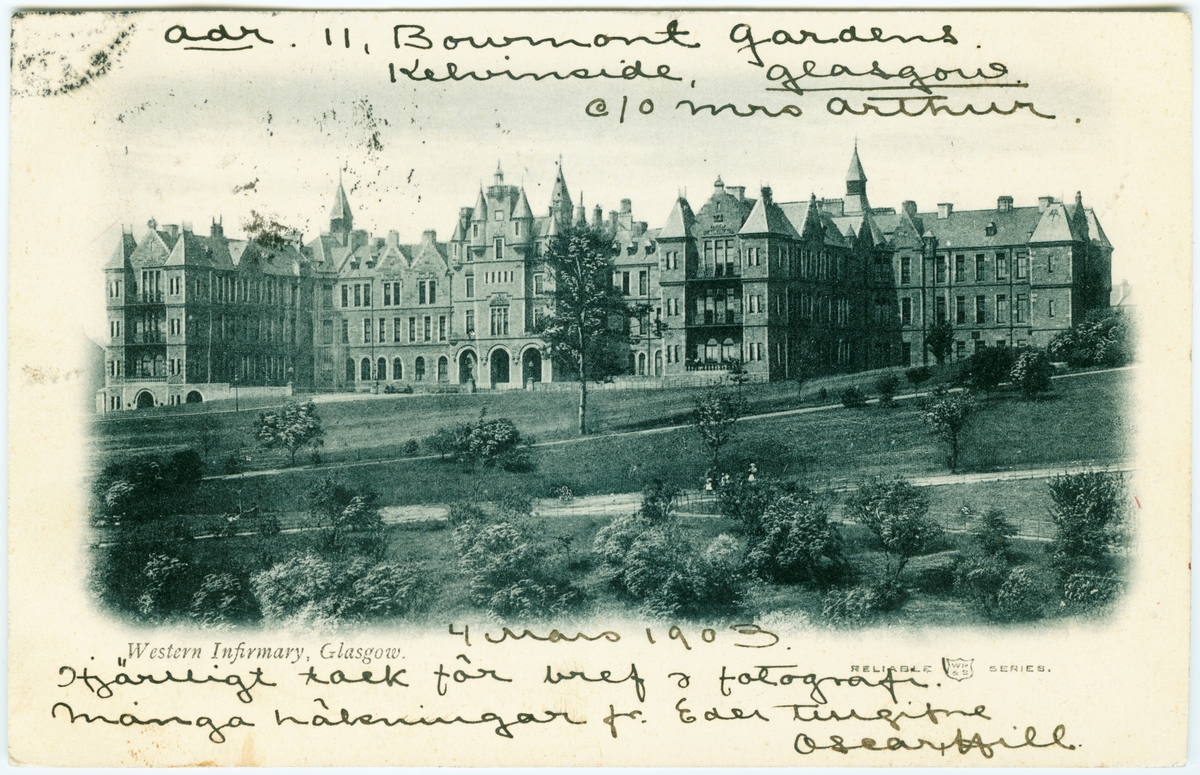 adr. 11, Bowmont Gardens.
Kelvinside, Glasgow.
c/o Mrs Arthur.
4 Mars 1903.
Western Infirmary, Glasgow.
RELIABLE WR&S SERIES.
Hjärtligt tack för bref & fotografi.
Många hälsningar fr. Eder tillgifne
Oscar Hill.